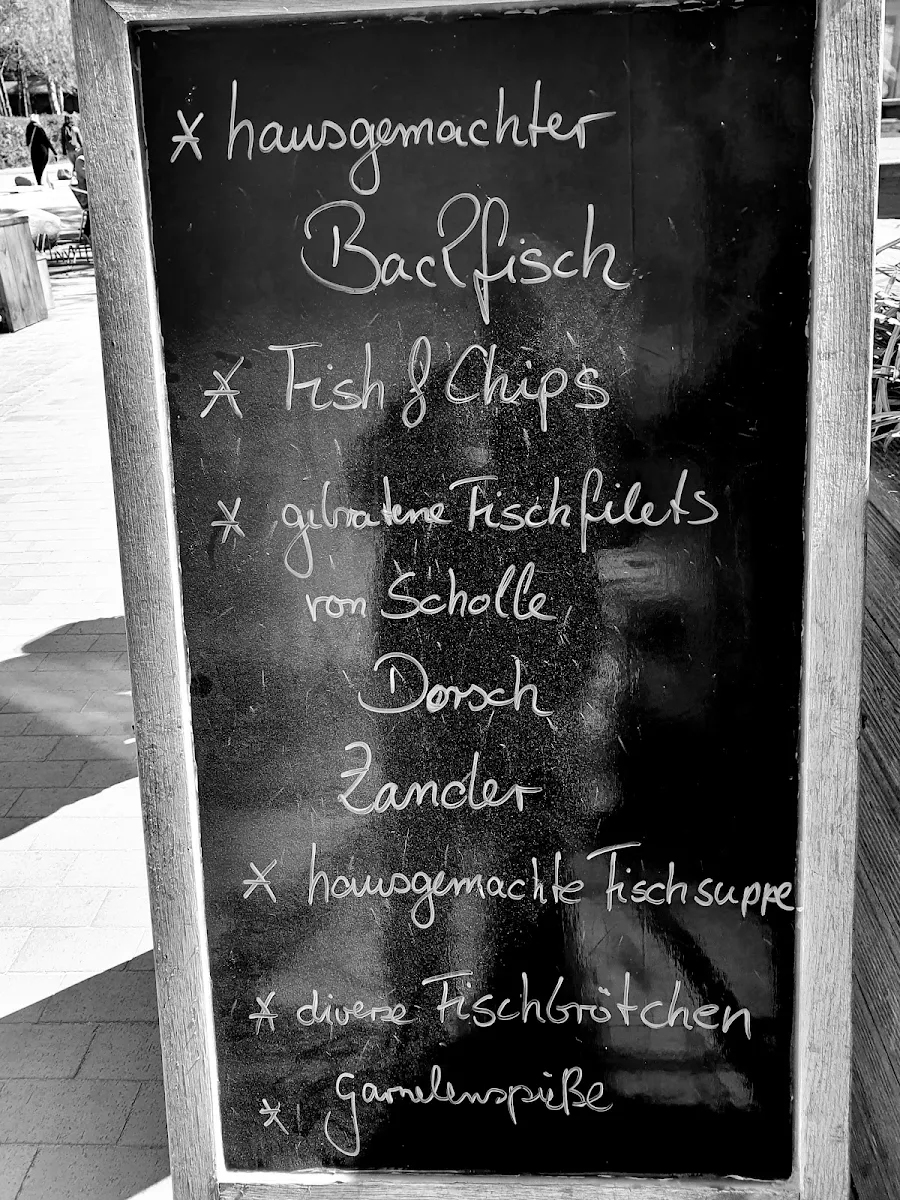 * hausgemachter
Backfisch
* Fish & Chips
* gebratene Fischfilets
von Scholle,
Dorsch
Zander
* hausgemachte Fischsuppe
* diverse Fischbrötchen
* Garnelenspieße